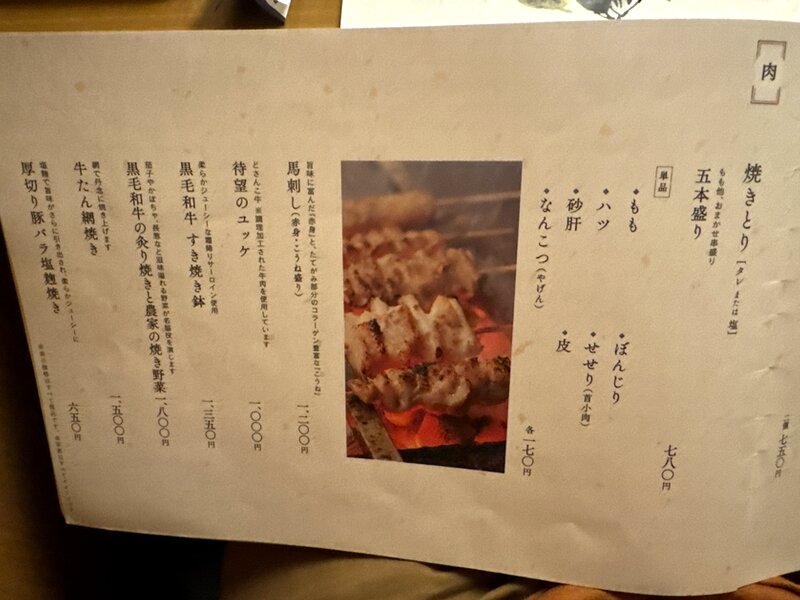 肉
二個 七五〇円
焼きとり [タレ または 塩]
もも他、おまかせ串盛り
五本盛り 七八〇円
単品
・もも ・ぼんじり
・ハツ ・せせり(首小肉)
・砂肝 ・皮
・なんこつ(やげん) 各一七〇円
旨味に富んだ「赤身」と、たてがみ部分のコラーゲン豊富な「こうね」
馬刺し(赤身・こうね盛り) 一、二〇〇円
どさんこ牛 ※調理加工された牛肉を使用しています
待望のユッケ 一、〇〇〇円
柔らかジューシーな霜降りサーロイン使用
黒毛和牛 すき焼き鉢 一、三五〇円
茄子やかぼちゃ、長葱など滋味溢れる野菜が名脇役を演じます
黒毛和牛の炙り焼きと農家の焼き野菜 一、八〇〇円
網で丹念に焼き上げます
牛たん網焼き 一、五〇〇円
塩麹で旨味がさらに引き出され、柔らかジューシーに
厚切り豚バラ塩麹焼き 六五〇円